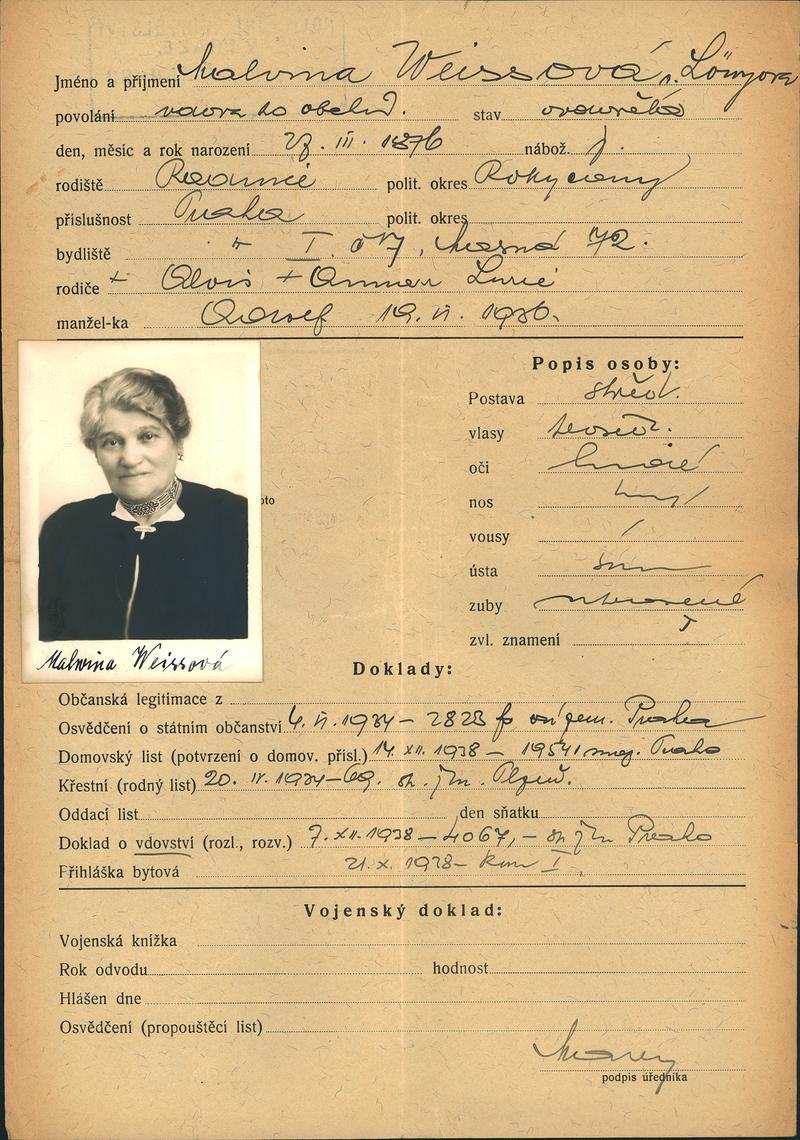 Jméno a přijmení Malvina Weissová,
povolání vdova po obchod. stav ovdovělá
den, měsíc a rok narození 27. III. 1876 nábož. ž.
rodiště polit. okres Rokycany
příslušnost Praha polit. okres
bydliště " I. 617, Masná
rodiče + Alois +
manžel-ka Adolf 19. VI. 1936.
oto
Popis osoby:
Postava střed.
vlasy
oči hnědé
nos
vousy /
ústa
zuby
zvl. znamení
Malvina Weissová
Doklady:
Občanská legitimace z
Osvědčení o státním občanství 4. VI. 1934 - 2828 Praha
Domovský list (potvrzení o domov. přísl.) 14. XII. 1938 - 19541 mag. Praha
Křestní (rodný list) 20. IV. 1934-69. Plzeň.
Oddací list den sňatku
Doklad o vdovství (rozl., rozv.) 7. XII. 1938 - 4067, - Praha
Přihláška bytová 21. X. 1938 - kom I.
Vojenský doklad:
Vojenská knížka
Rok odvodu hodnost
Hlášen dne
Osvědčení (propouštěcí list)
podpis úředníka